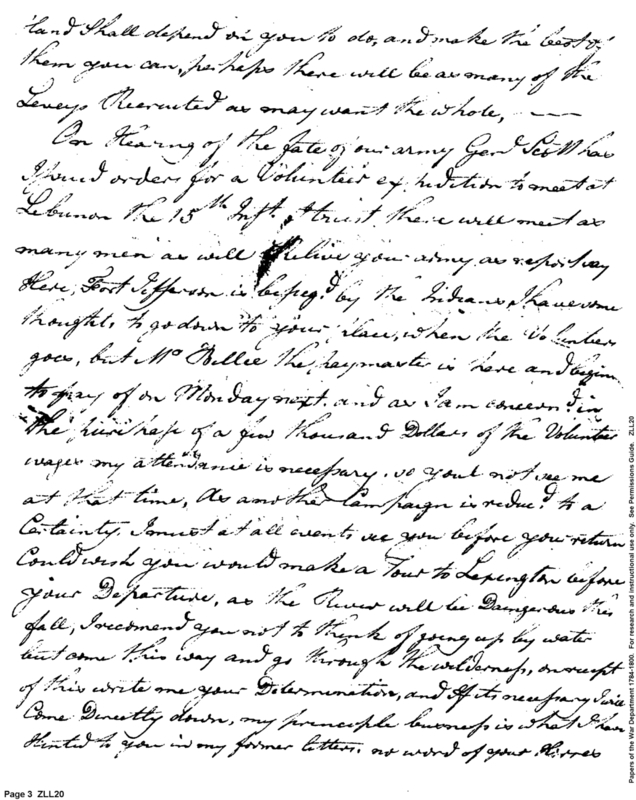 land Shall depend on you to do, and make the best of
them you can, perhaps there will be as many of the
Leveys Recruited as may want the whole, ——
On Hearing of the fate of our army Genl. Scott has
Issued orders for a Volunteer expedition to meet at
Lebunon the 15th Inst. I trust there will meet as
many men as will Relive your army as report say
Here, Fort Jefferson is beseig'd by the Indians, I have some
thoughts to go down to your place, when the Volunteers
goes, but Mr. Bellie the paymaster is here and begins
to pay of on Monday next and as I am concern'd in
the purchase of a few thousand Dollars of the Volunteer
wages my attendance is necessary, so youl not see me
at that time, As another Campaign is reduc'd to a
Certainty. I must at all events see you before your return
Could wish you would make a Tour to Lexington before
your Departure, as the River will be Dangerous this
fall, I recomend you not to think of going up by water
but come this way and go through the wilderness, on receipt
of this write me your Determination, and If its necessary I will
Come Directly down, my principle business is what I have
Hinted to you in my former letters. no word of your Horses
Page 3 ZLL20
Papers of the War Department 1784-1800. For research and instructional use only. See Permissions Guide. ZLL20